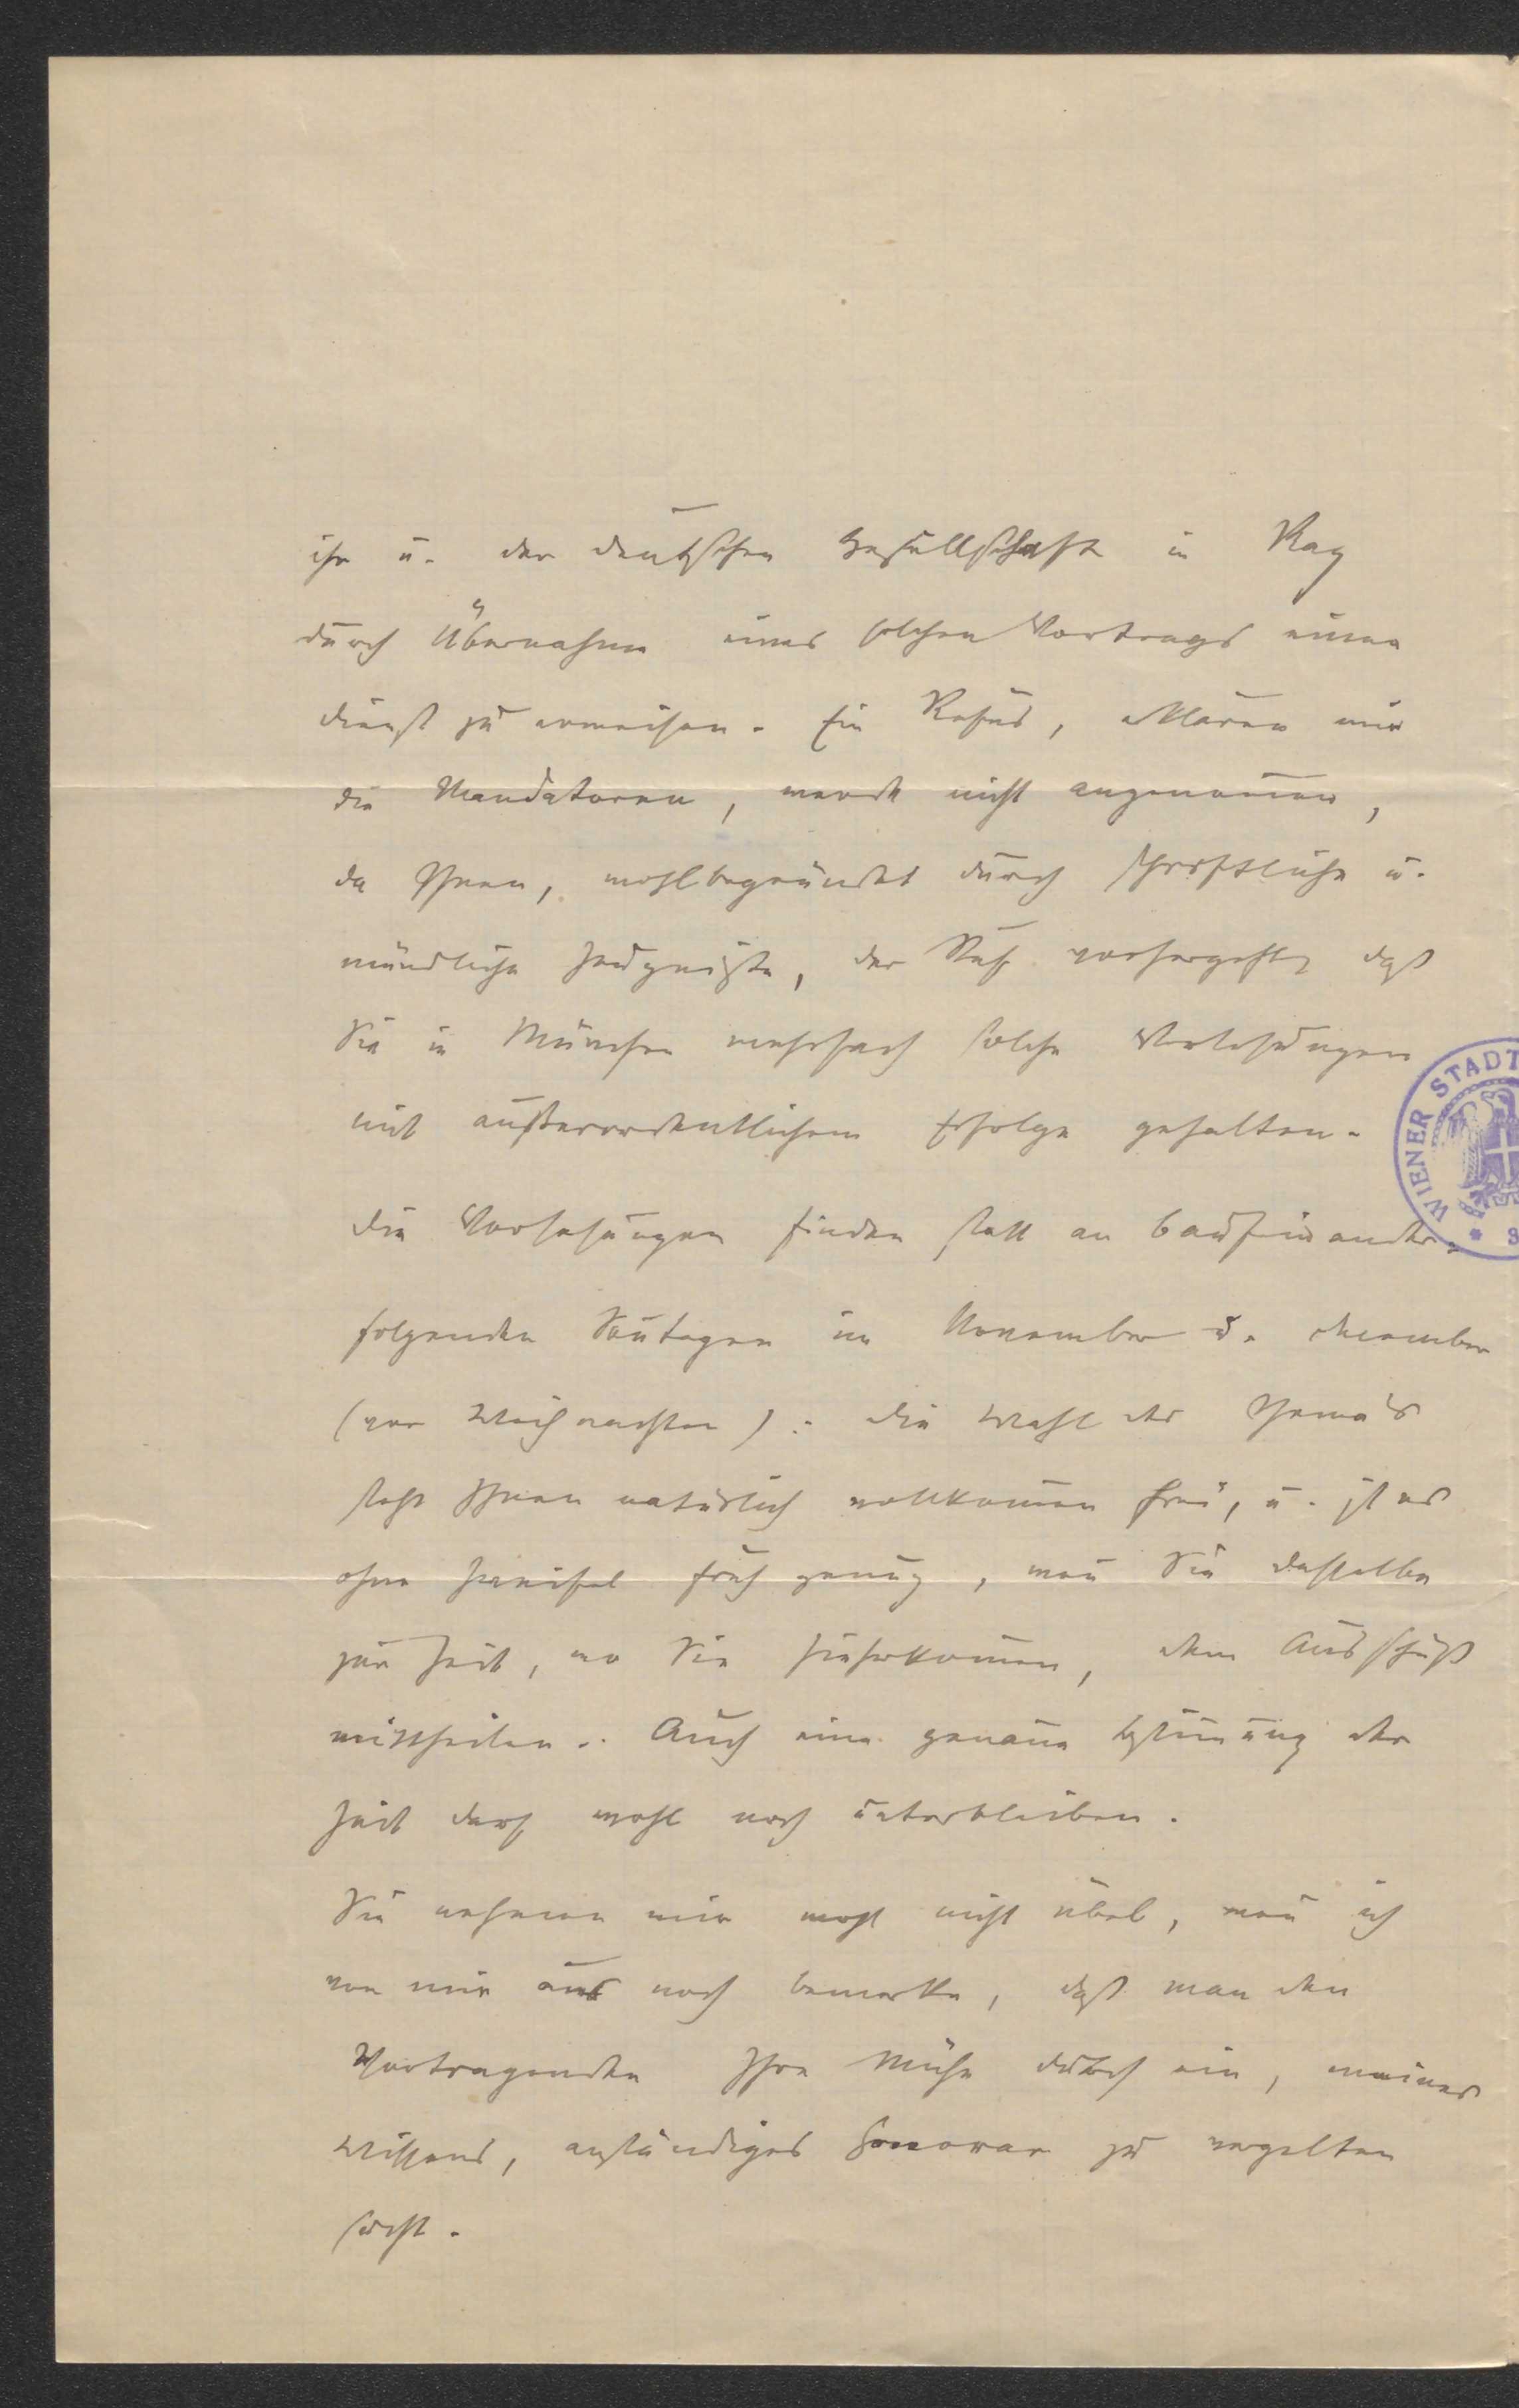 ihr u. der deutschen Gesellschaft in Rag
durch Übernahme eines solchen Vortrags einen
Dienst zu erweisen. Ein Refus, erklären mir
die Mandatoren, werde nicht angenommen,
da Ihnen, wohlbegründet durch schriftliche u.
mündliche Zeugnisse, der Ruf vorhergehe, daß
Sie in München mehrfach solche Vorlesungen
mit außerordentlichem Erfolge gehalten.
Die Vorlesungen finden statt an 6 aufeinander-
folgenden Sontagen im November u. December
(vor Weihnachten). Die Wahl des Thema's
steht Ihnen natürlich vollkomen frei, u. ist es
ohne Zweifel früh genug, wen Sie dasselbe
zur Zeit, wo Sie hieherkomen, dem Ausschuß
mittheilen. Auch eine genaue Bestimung der
Zeit darf wohl noch unterbleiben.
Sie nehmen mir wohl nicht übel, wen ich
von mir aus noch bemerke, daß man den
Vortragenden Ihre Mühe durch ein, meines
Wissens, anständiges Honorar zu vergelten
sucht.
WIENER STADT